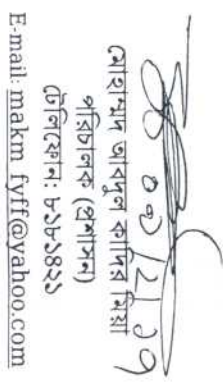 মোহাম্মদ আবদুল কাদের মিয়া
পরিচালক (প্রশাসন)
টেলিফোন: ৮১৮১৪২১
E-mail: makm_fyff@yahoo.com